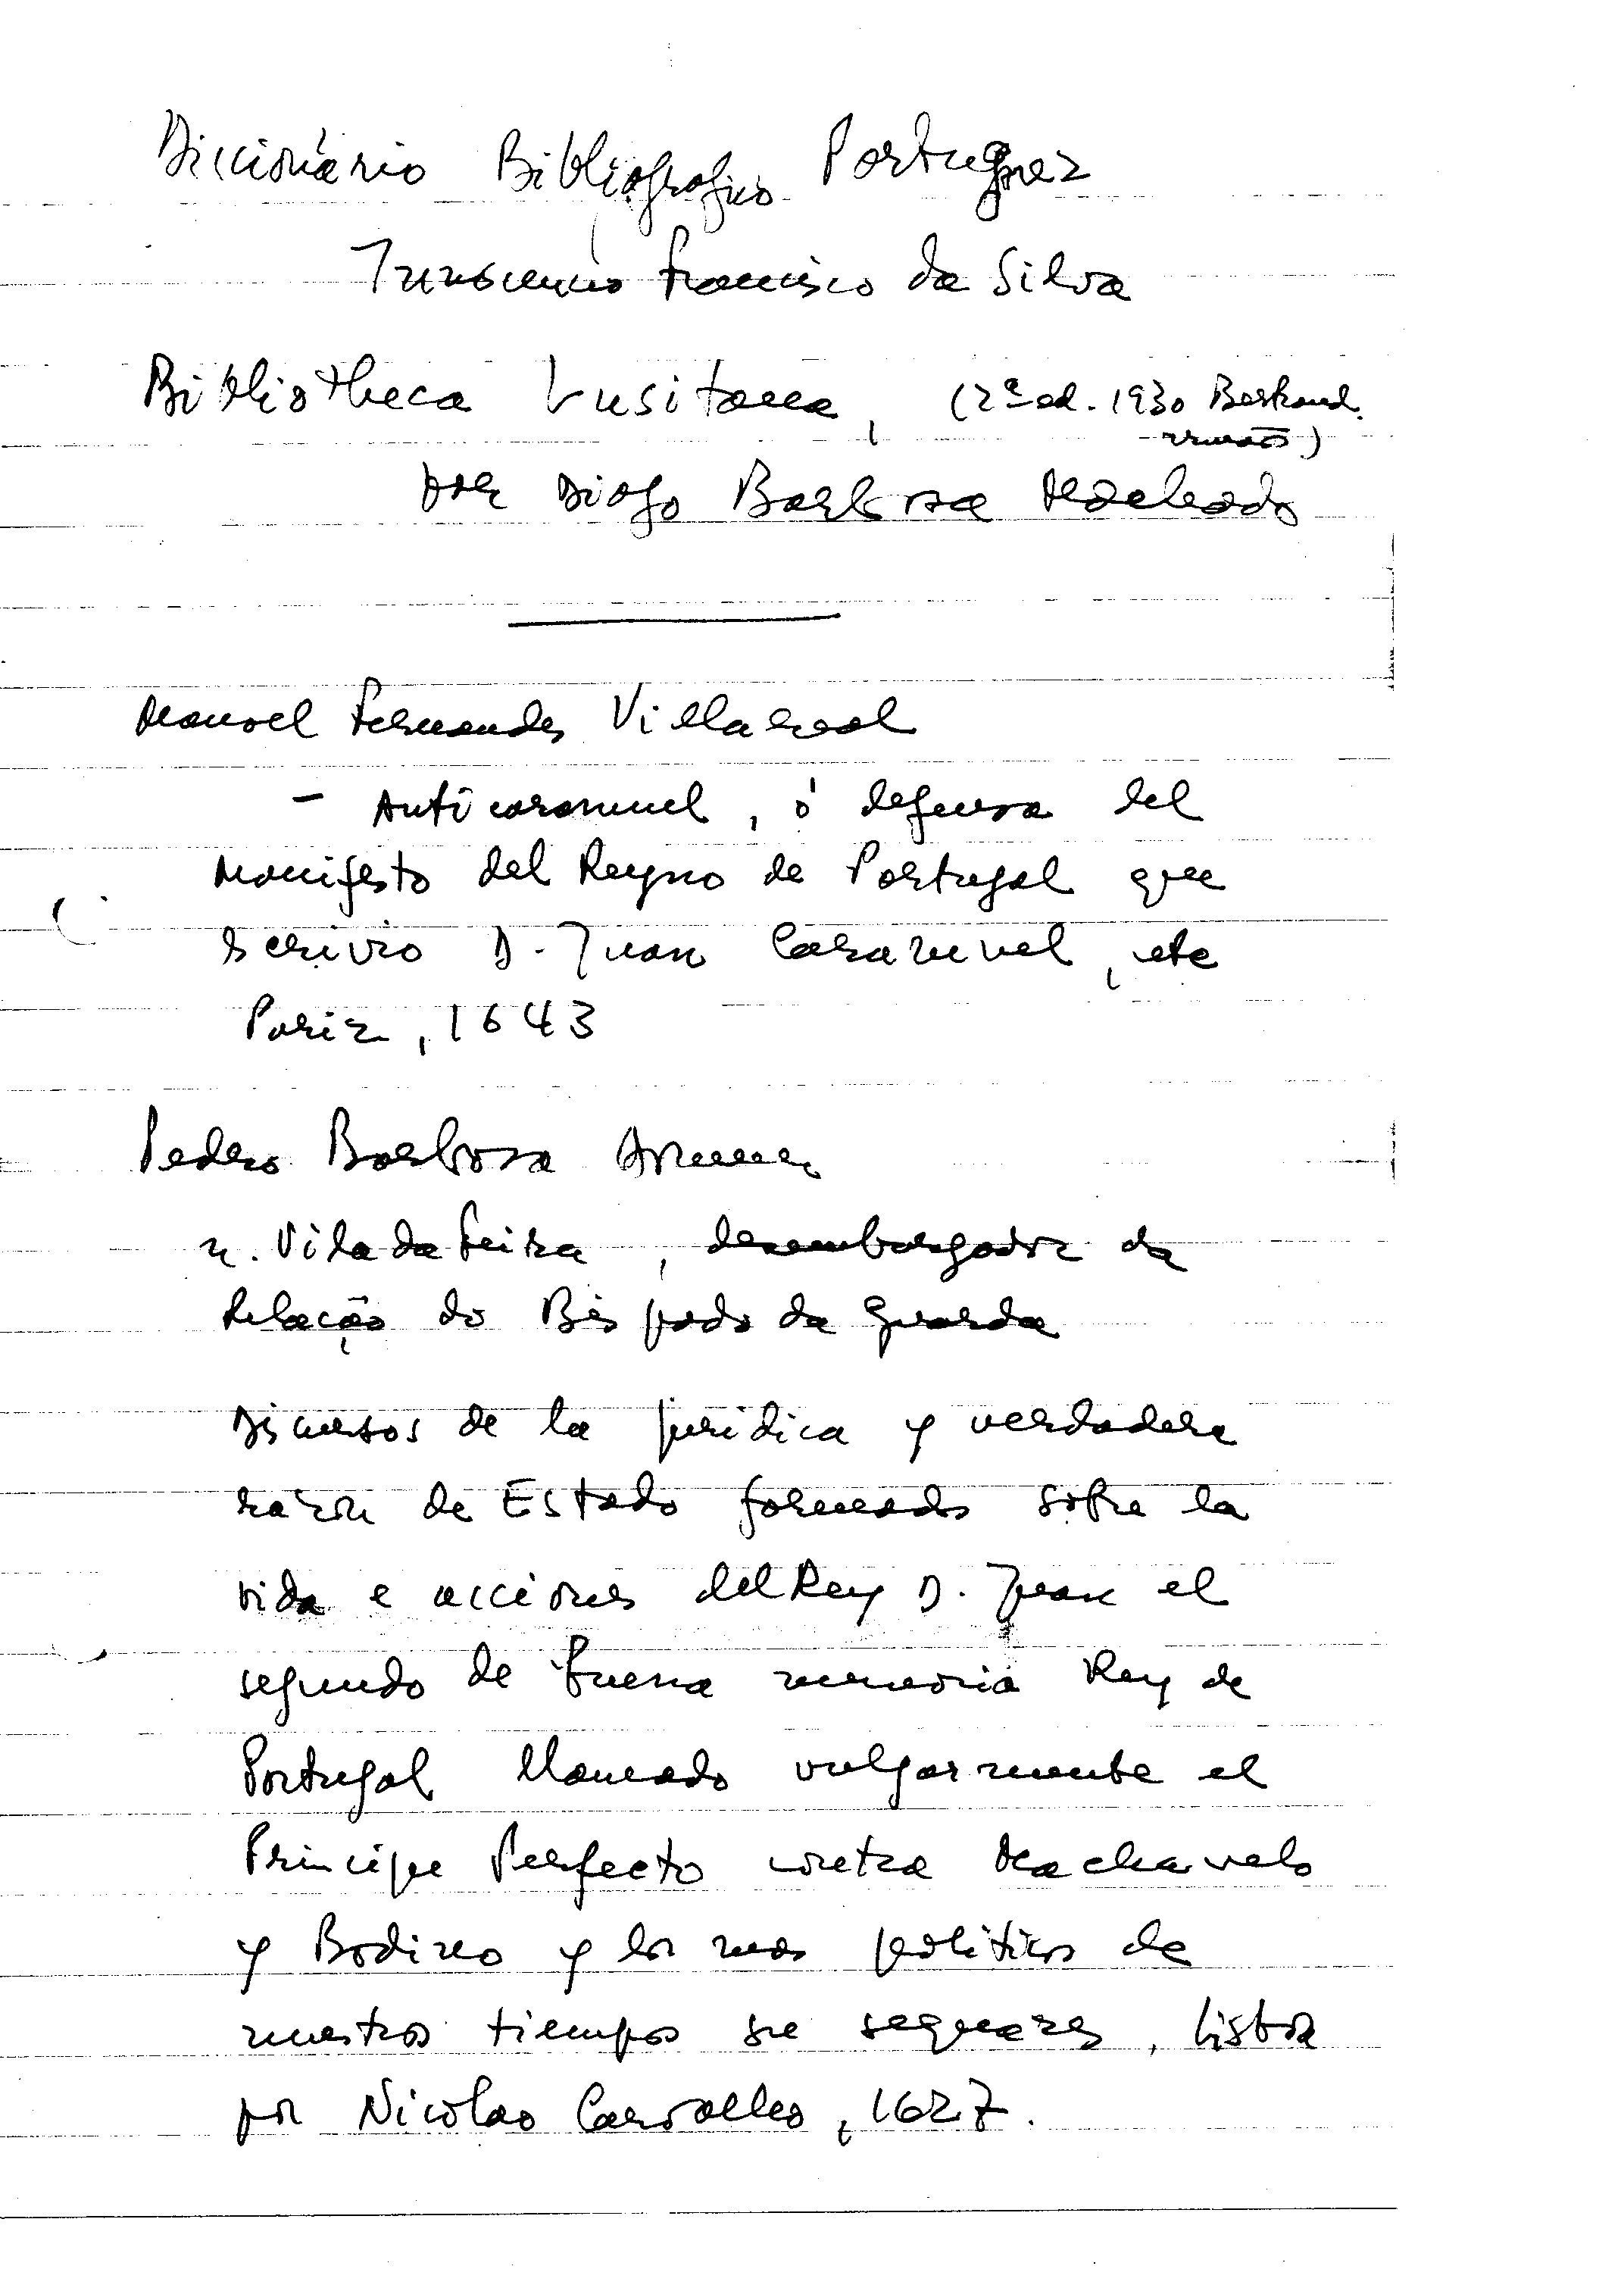 Diccionário Bibliografico Portuguez
Innocencio Francisco da Silva
Bibliotheca Lusitana, (2ª ed. 1930 Bertrand.
irmãos)
por Diogo Barbosa Machado
Manoel Fernandes Villareal
- Anticaramuel, ó defensa del
Manifesto del Reyno de Portugal que
escrivio D. Juan Caramuel, etc
Pariz, 1643
Pedro Barbosa Homem
n. Vila da Feira, desembargador da
Relação do Bispado da Guarda
Discursos de la juridica y verdadera
razon de Estado formados sobre la
vida e acciones del Rey D. Juan el
segundo de buena memoria Rey de
Portugal llamado vulgarmente el
Principe Perfecto contra Machavelo
y Bodino y los mas politicos de
nuestros tiempos sus sequazes, Lisboa
por Nicolao Carvalho, 1627.